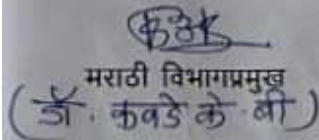 मराठी विभागप्रमुख
(डॉ. कवडे के. बी)